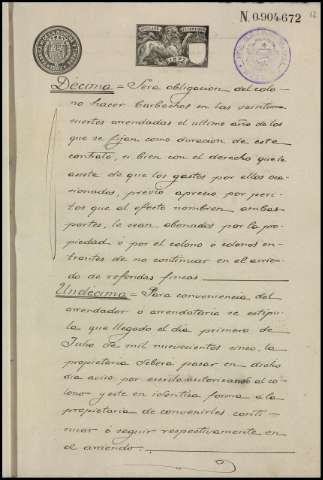 N. 0.904.672
12
Décima = Será obligación del colo-
no hacer barbechos en las
arrendadas el último año de los
que se fijan como duración de este
contrato, si bien con el derecho que le
asiste de que los gastos por ellos oca-
sionados, previo aprecio por peri-
tos que al efecto nombren ambas
partes, le sean abonados por la pro-
piedad ó por el colono ó colonos en-
trantes de no continuar en el arrien-
do de referidas fincas
Undécima = Para conveniencia del
arrendador ó arrendatario se estipu-
la que llegado el dia primero de
Julio de mil nuevecientos cinco, la
propietaria deberá pasar en dicho
dia aviso por escrito autorizando al co-
lono y este en identica forma a la
propietaria de convenirles conti-
nuar ó seguir respectivamente en
el arriendo.